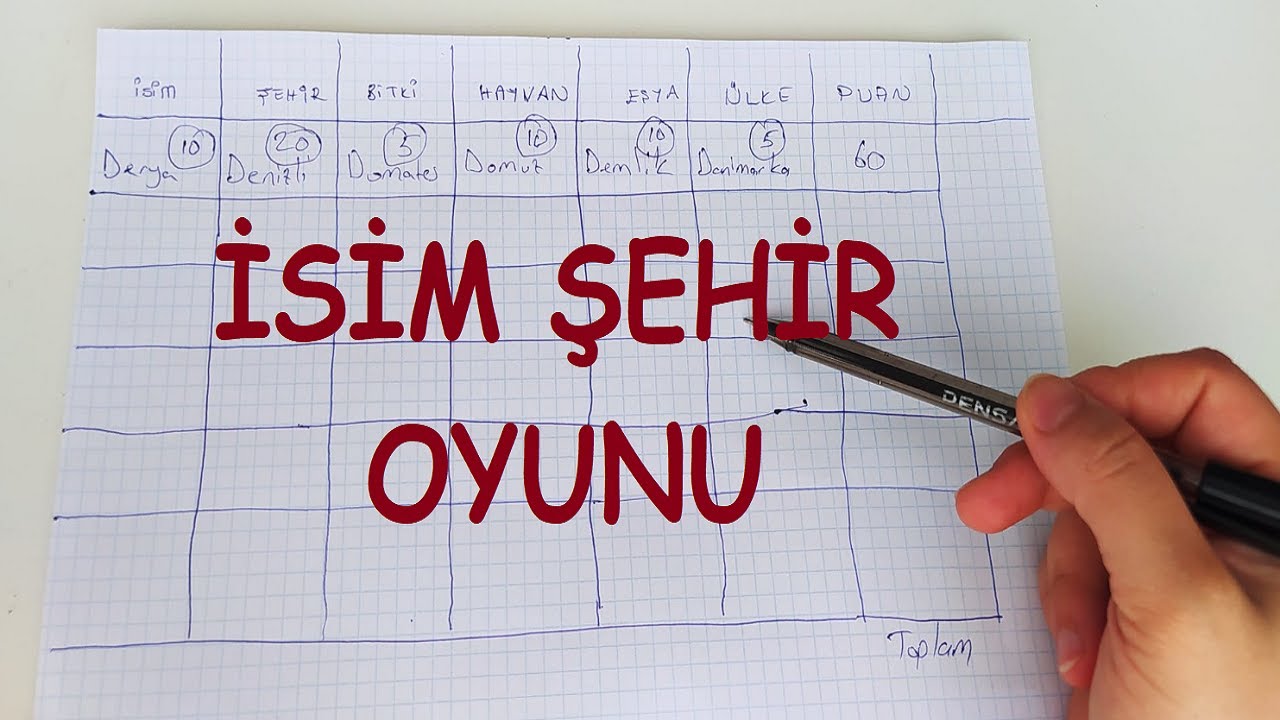 İSİM ŞEHİR BİTKİ HAYVAN EŞYA ÜLKE PUAN
10 20 5 10 10 5
Derya Denizli Domates Domuz Demlik Danimarka 60
İSİM ŞEHİR
OYUNU
DENSA
Toplam